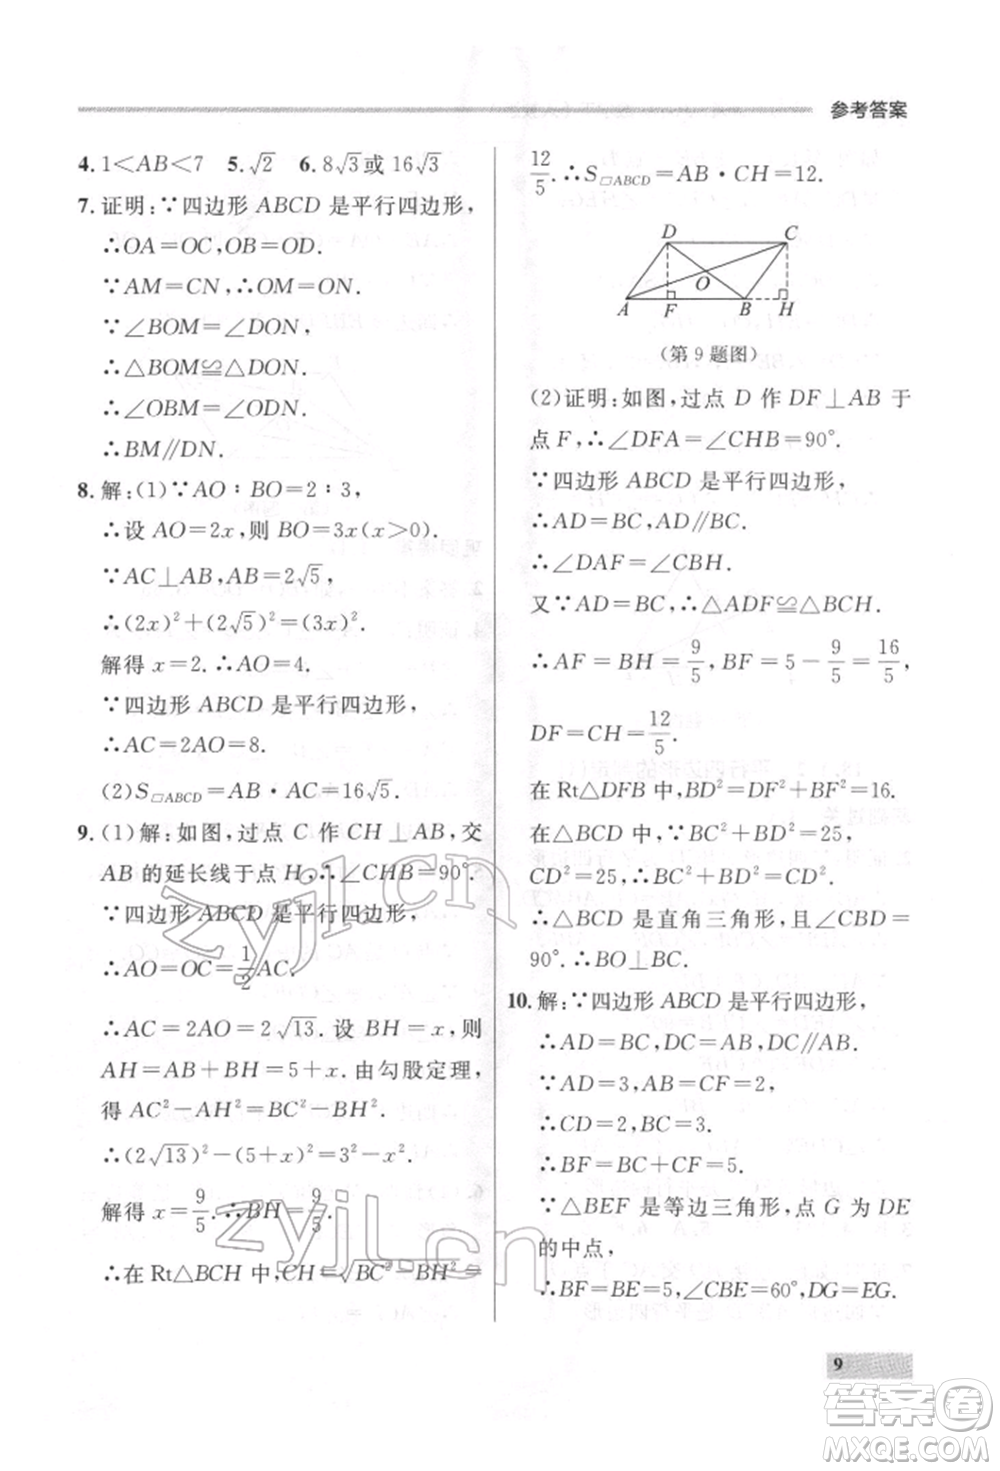 参考答案
4. 1<AB<7 5. √2 6. 8√3或16√3
7. 证明:∵四边形ABCD是平行四边形,
∴OA=OC,OB=OD.
∵AM=CN,∴OM=ON.
∵∠BOM=∠DON.
∴△BOM≌△DON.
∴∠OBM=∠ODN.
∴BM∥DN.
8. 解:(1)∵AO∶BO=2∶3,
∴设AO=2x,则BO=3x(x>0).
∵AC⊥AB,AB=2√5,
∴(2x)²+(2√5)²=(3x)².
解得x=2.∴AO=4.
∵四边形ABCD是平行四边形,
∴AC=2AO=8.
(2)S▱ABCD=AB·AC=16√5.
9. (1)解:如图,过点C作CH⊥AB,交
AB的延长线于点H,∴∠CHB=90°.
∵四边形ABCD是平行四边形,
∴AO=OC=1/2AC.
∴AC=2AO=2√13. 设BH=x,则
AH=AB+BH=5+x. 由勾股定理,
得AC²-AH²=BC²-BH².
∴(2√13)²-(5+x)²=3²-x².
解得x=9/5.∴BH=9/5.
∴在Rt△BCH中,CH=√(BC²-BH²)=
12/5.∴S▱ABCD=AB·CH=12.
D C
O
A F B H
(第9题图)
(2)证明:如图,过点D作DF⊥AB于
点F,∴∠DFA=∠CHB=90°.
∵四边形ABCD是平行四边形,
∴AD=BC,AD∥BC.
∴∠DAF=∠CBH.
又∵AD=BC,∴△ADF≌△BCH.
∴AF=BH=9/5,BF=5-9/5=16/5,
DF=CH=12/5.
在Rt△DFB中,BD²=DF²+BF²=16.
在△BCD中,∵BC²+BD²=25,
CD²=25,∴BC²+BD²=CD².
∴△BCD是直角三角形,且∠CBD=
90°.∴BO⊥BC.
10. 解:∵四边形ABCD是平行四边形,
∴AD=BC,DC=AB,DC∥AB.
∵AD=3,AB=CF=2,
∴CD=2,BC=3.
∴BF=BC+CF=5.
∵△BEF是等边三角形,点G为DE
的中点,
∴BF=BE=5,∠CBE=60°,DG=EG.
9
zyjl.cn
zyjl.cn
答案圈
MXQE.COM